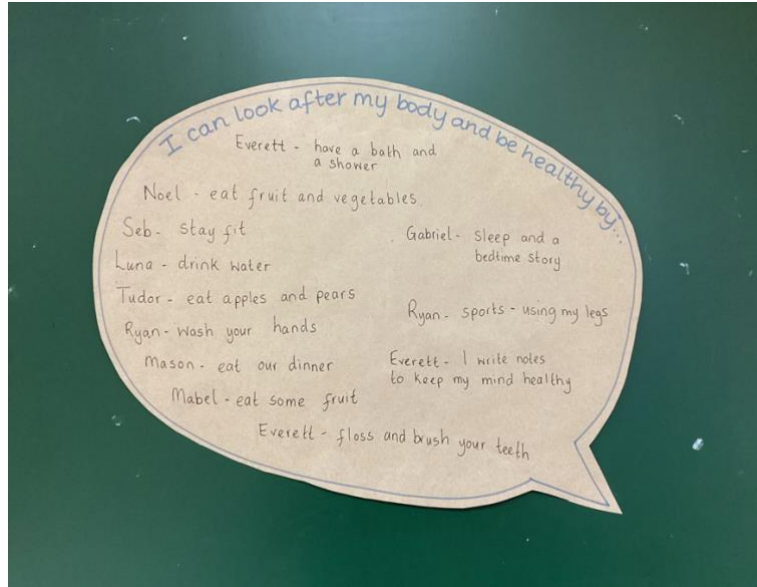 I can look after my body and be healthy by...
Everett - have a bath and
a shower
Noel - eat fruit and vegetables
Seb - stay fit
Luna - drink water
Tudor - eat apples and pears
Ryan - wash your hands
Mason - eat our dinner
Mabel - eat some fruit
Gabriel - sleep and a
bedtime story
Ryan - sports - using my legs
Everett - I write notes
to keep my mind healthy
Everett - floss and brush your teeth